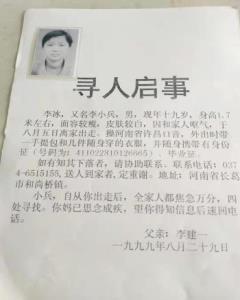 寻人启事
李冰，又名李小兵，男，现年十九岁，身高1.7
米左右，面容较瘦，皮肤较白，因和家人呕气，于
八月五日离家出走。操河南省许昌口音，外出时带
一手提包和几件随身穿的衣服，并随身携带有身份
证（号码为：411022810126665）、毕业证。
如有知其下落者，请协助联系。联系电话：037
4-6515155，送人到家者，定重谢。地址：河南省长葛
市和尚桥镇。
小兵，自从你出走后，全家人都焦急万分，四
处寻找。你妈已思念成疾，望你得知信息后速回电
话。
父亲：李建一
一九九九年八月二十九日